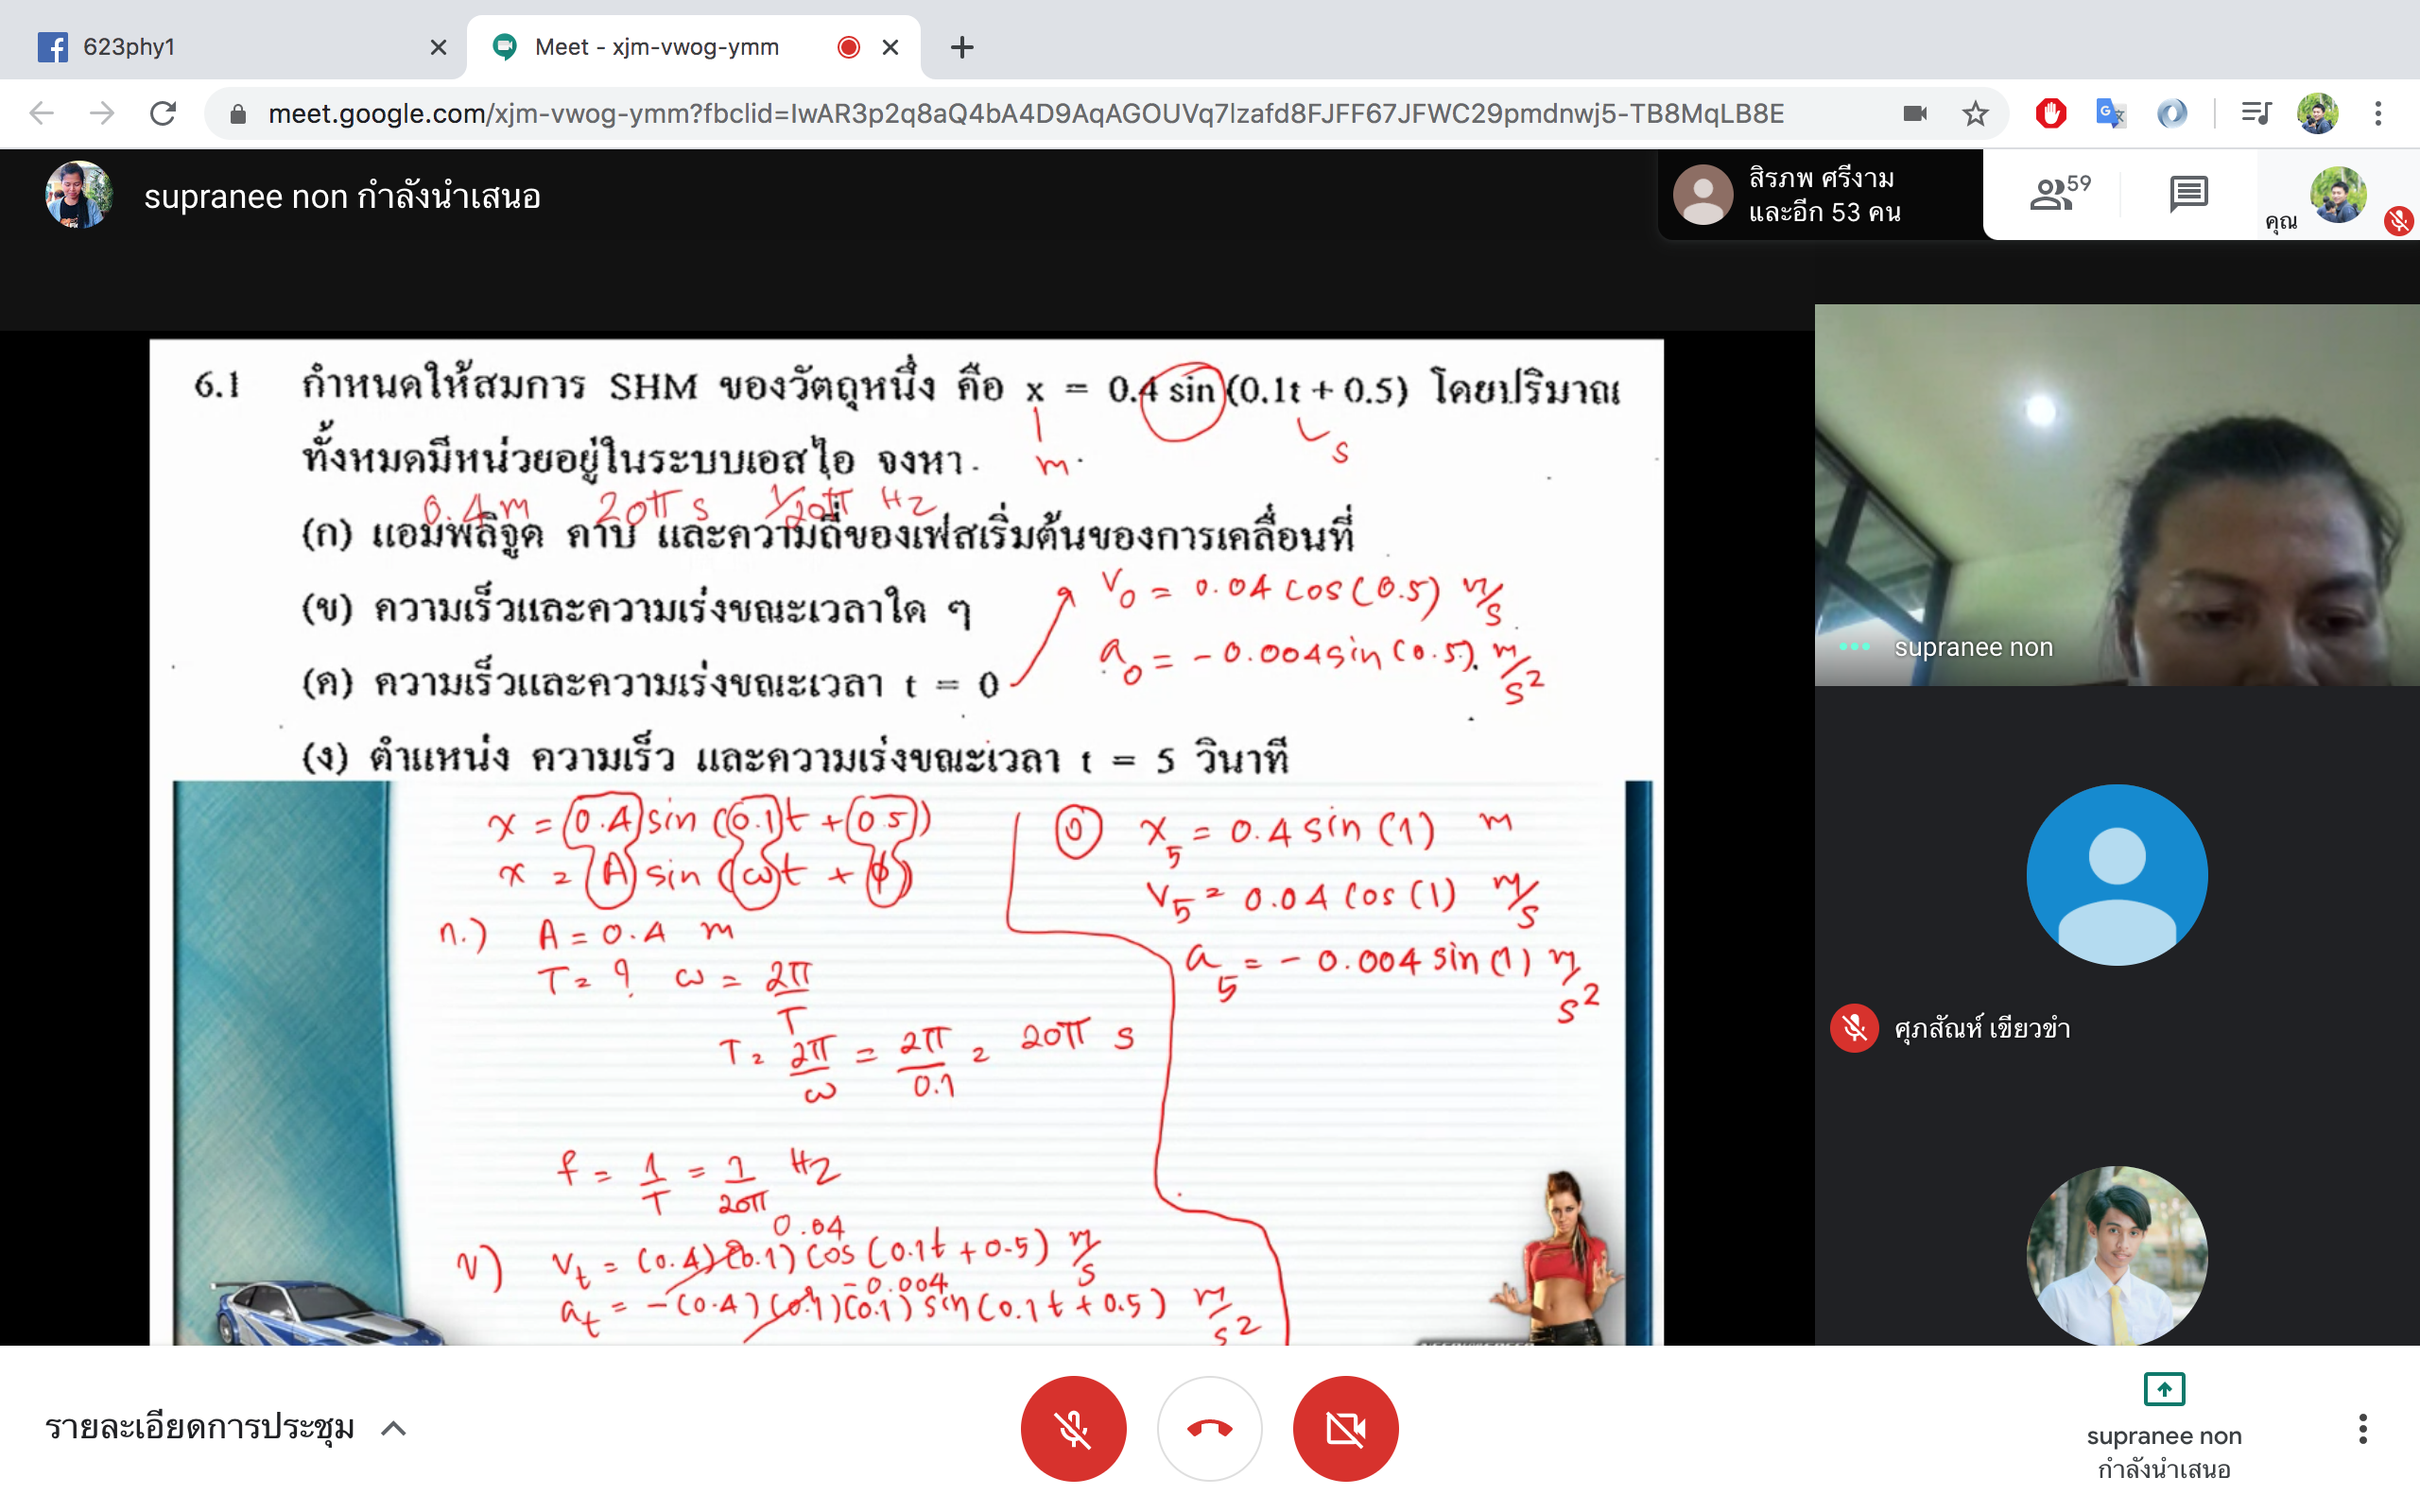 623phy1
Meet - xjm-vwog-ymm
meet.google.com/xjm-vwog-ymm?fbclid=IwAR3p2q8aQ4bA4D9AqAGOUVq7lzafd8FJFF67JFWC29pmdnwj5-TB8MqLB8E
supranee non กำลังนำเสนอ
สิรภพ ศรีงาม
และอีก 53 คน
59
คุณ
6.1 กำหนดให้สมการ SHM ของวัตถุหนึ่ง คือ x = 0.4 sin (0.1t + 0.5) โดยปริมาณ
m s
ทั้งหมดมีหน่วยอยู่ในระบบเอสไอ จงหา
0.4 m 20π s 1/20π Hz
(ก) แอมพลิจูด คาบ และความถี่ของเฟสเริ่มต้นของการเคลื่อนที่
(ข) ความเร็วและความเร่งขณะเวลาใด ๆ
v₀ = 0.04 cos(0.5) m/s
a₀ = -0.004 sin(0.5) m/s²
(ค) ความเร็วและความเร่งขณะเวลา t = 0
(ง) ตำแหน่ง ความเร็ว และความเร่งขณะเวลา t = 5 วินาที
x = 0.4 sin (0.1t + 0.5)
x = A sin (ωt + φ)
ก.) A = 0.4 m
T = ? ω = 2π/T
T = 2π/ω = 2π/0.1 = 20π s
f = 1/T = 1/20π Hz
0.04
ข) vₜ = (0.4)(0.1) cos (0.1t + 0.5) m/s
-0.004
aₜ = -(0.4)(0.1)(0.1) sin (0.1t + 0.5) m/s²
ง x₅ = 0.4 sin (1) m
v₅ = 0.04 cos (1) m/s
a₅ = -0.004 sin (1) m/s²
supranee non
ศุภสัณห์ เขียวขำ
รายละเอียดการประชุม
supranee non
กำลังนำเสนอ